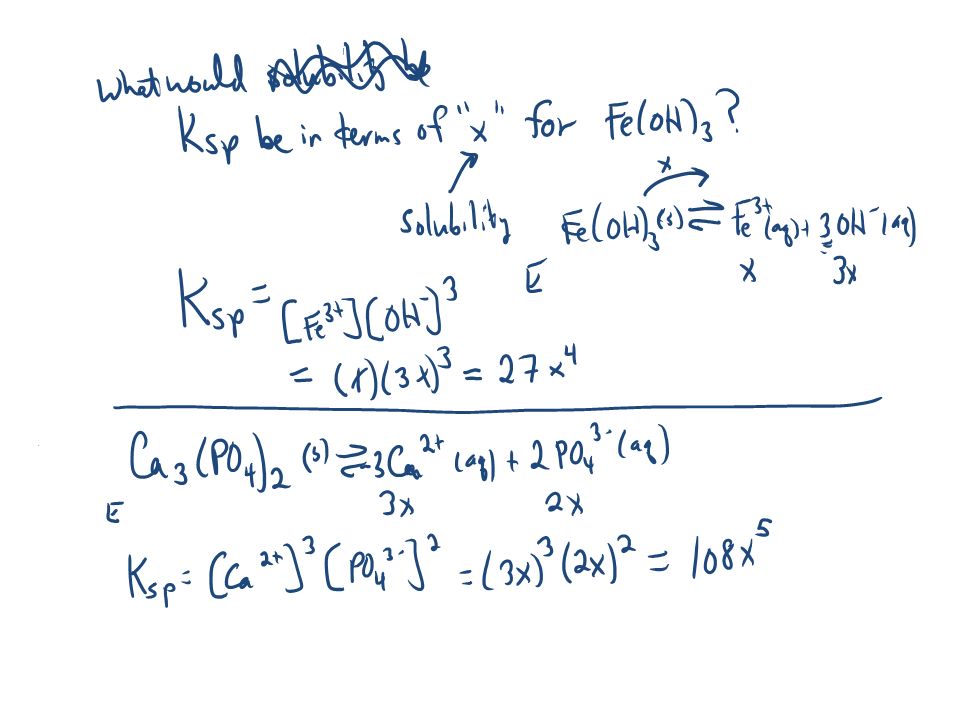 What would solubility be
Ksp be in terms of "x" for Fe(OH)₃?
x
solubility
Fe(OH)₃(s) ⇌ Fe³⁺(aq) + 3OH⁻(aq)
E x 3x
Ksp = [Fe³⁺][OH⁻]³
= (x)(3x)³ = 27x⁴
Ca₃(PO₄)₂ (s) ⇌ 3Ca²⁺ (aq) + 2PO₄³⁻(aq)
E 3x 2x
Ksp = [Ca²⁺]³[PO₄³⁻]² = (3x)³(2x)² = 108x⁵